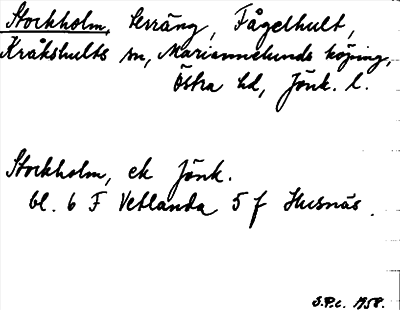 Stockholm, terräng, Fågelhult,
Kråkshults sn, Mariannelunds köping,
Östra hd, Jönk. l.
Stockholm, ek Jönk.
bl. 6 F Vetlanda 5 f Husnäs.
S.P.c. 1958.